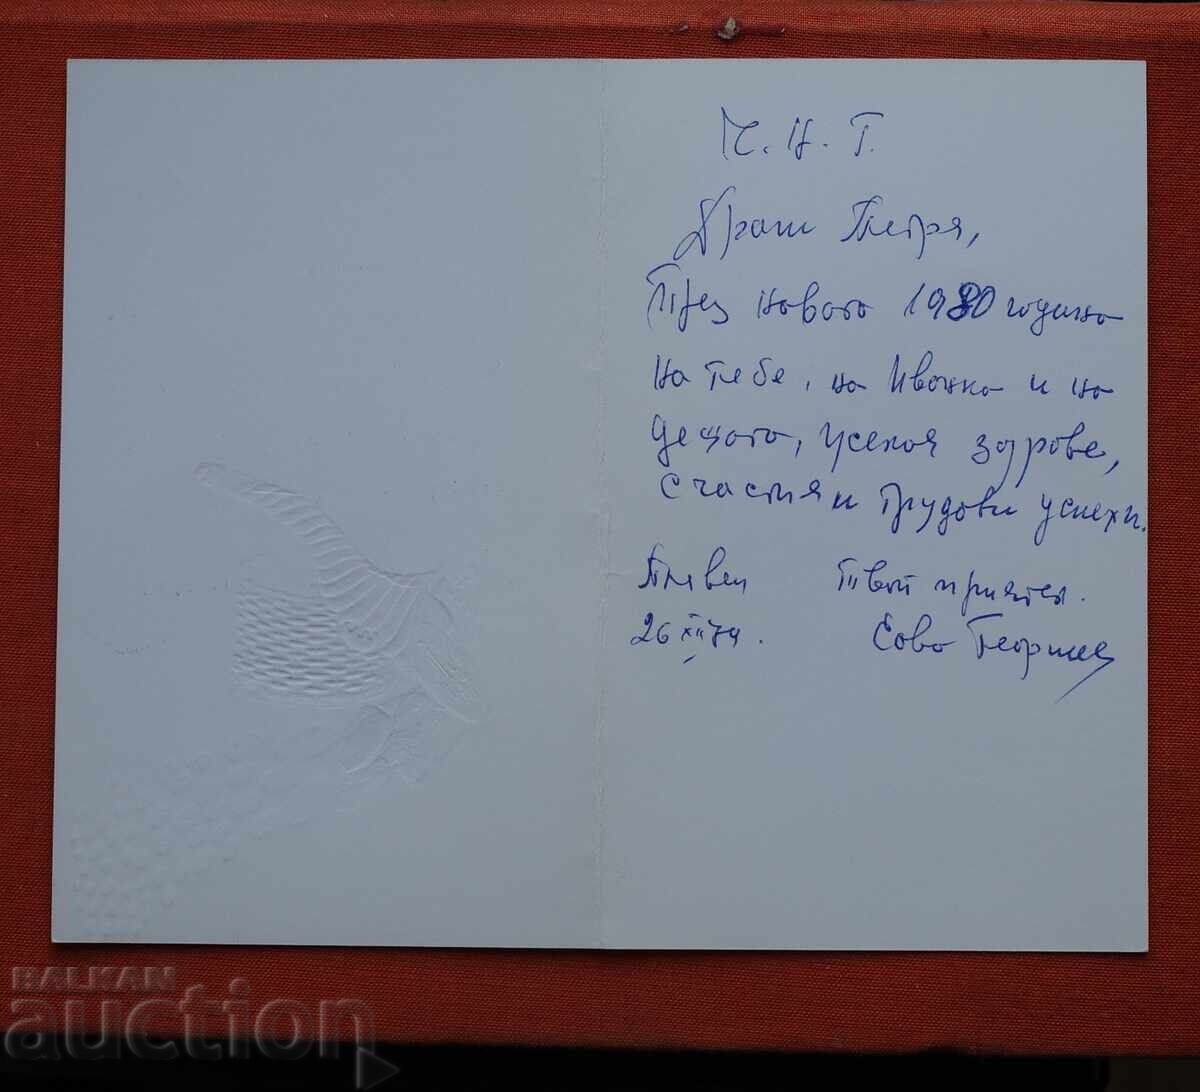 Ч.Н.Г.
Драги Петря,
През новата 1980 година
на тебе, на Иванка и на
децата, всекоя здраве,
щастия и трудови успехи.
Плевен Твой приятел.
26 XII 79. Георгиев
BALKAN
auction